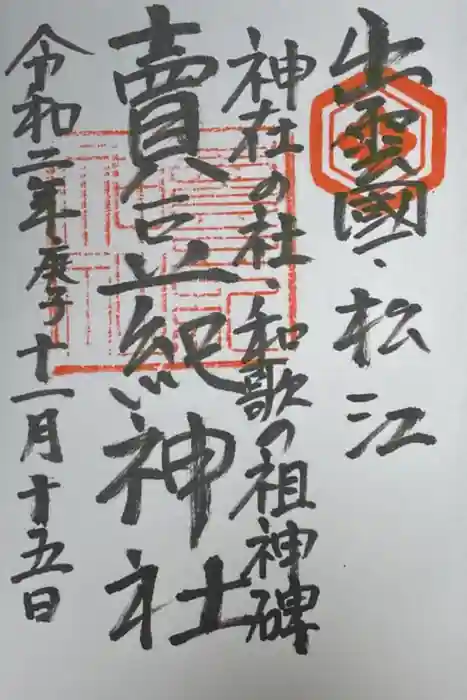 出雲國・松江
神在の社・和歌の祖神碑
賣豆紀神社
令和二年庚子十一月十五日